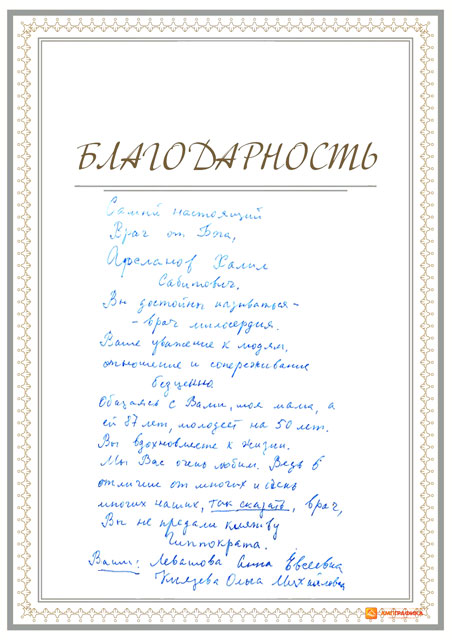 БЛАГОДАРНОСТЬ
Самый настоящий
Врач от Бога,
Арсланов Халил
Сабитович.
Вы достойны называться -
- врач милосердия.
Ваше уважение к людям,
отношение и сопереживание
бесценна
Общаясь с Вами, моя мама, а
ей 87 лет, молодеет на 50 лет.
Вы вдохновляете к жизни.
Мы Вас очень любим. Ведь в
отличие от многих и очень
многих наших, так сказать, врач,
Вы не предали клятву
Гиппократа.
Ваши: Левашова Анна Евсеевна
Князева Ольга Михайловна
КМПГРАФИКА